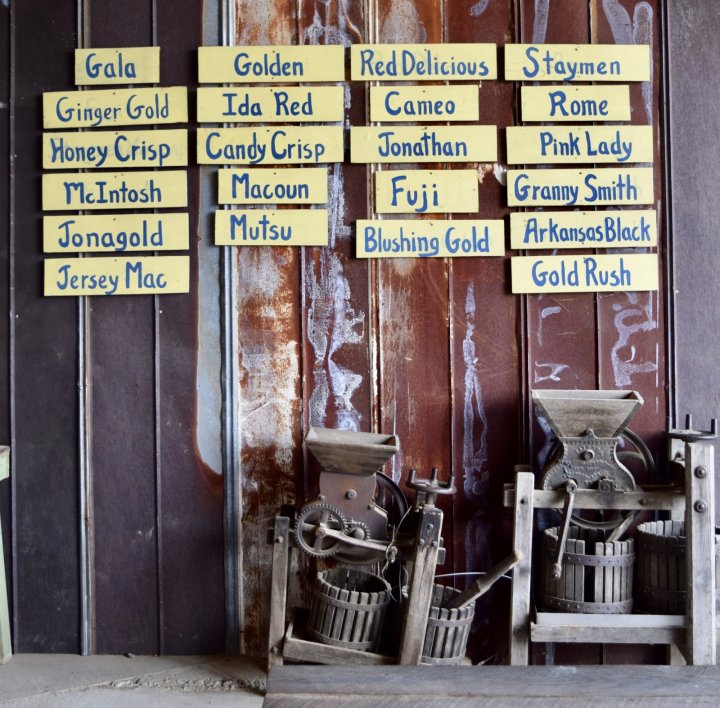 Gala
Ginger Gold
Honey Crisp
McIntosh
Jonagold
Jersey Mac
Golden
Ida Red
Candy Crisp
Macoun
Mutsu
Red Delicious
Cameo
Jonathan
Fuji
Blushing Gold
Staymen
Rome
Pink Lady
Granny Smith
Arkansas Black
Gold Rush